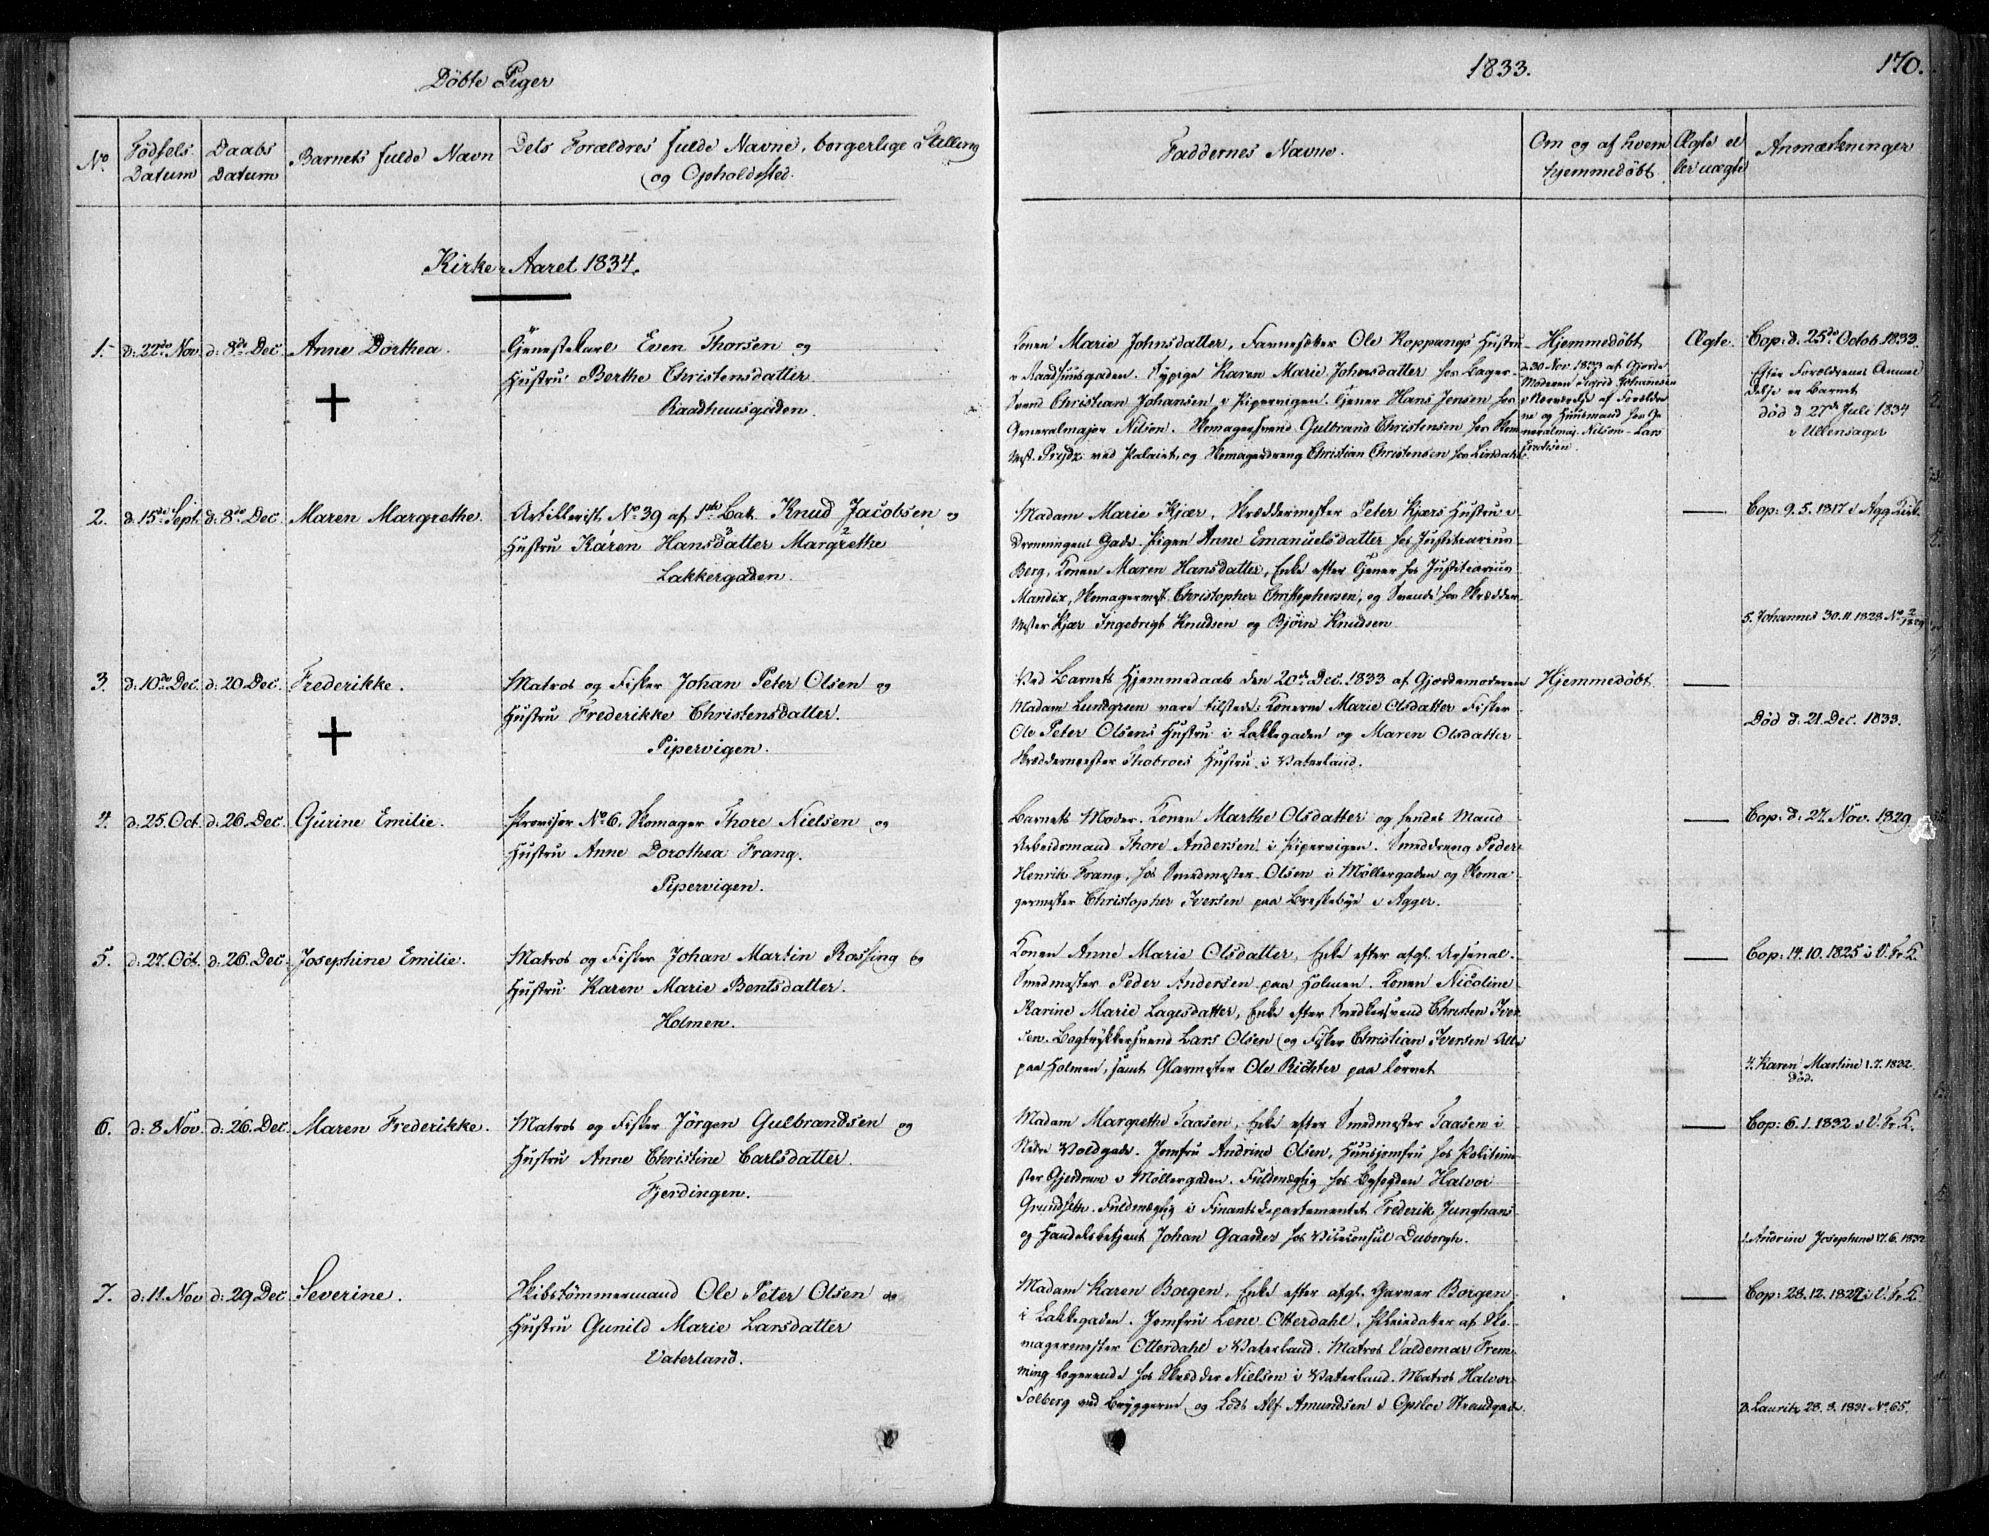 Döbte Piger
1833.
170.
No
Födsels Datum
Daabs Datum
Barnets fulde Navn
Dets Forældres fulde Navne, borgerlige Stilling
og Opholdssted.
Faddernes Navne.
Om og af hvem
hjemmedöbt
Ægte el
ler uægte
Anmærkninger
Kirke-Aaret 1834.
1. d: 22de Nov. d: 8de Dec. Anne Dorthea.
Tjenestekarl Even Thorsen og
Hustru Berthe Christensdatter.
Raadhuusgaden.
Konen Marie Johnsdatter, Ole Koppangs Hustru
i Raadhuusgaden. Pige Karen Marie Johnsdatter hos Lager-
Svend Christian Johansen i Pipervigen. Tjener Hans Jensen hos
Generalmajor Nilson. Skomagersvend Gulbrand Christensen hos Skom
Mest. Prydz ved Palaiet, og Skomagerdreng Christian Christensen hos Lindahl.
Hjemmedöbt
d. 30 Nov. 1833 af Gjorde
Moderen Sigrid Johannesen
i Nærværelse af Forældre
ne og Huusmand hos Ge
neralmaj. Nilson - Lars
Ægte.
Cop: d. 25de Octob. 1833.
Efter Forældrenes Anmel
delse er Barnet
död d 27de Juli 1834
i Ullensager
2. d. 15de Sept. d: 8de Dec. Maren Margrethe.
Artillerist No 39 af 1ste Bat. Knud Jacobsen og
Hustru Karen Hansdatter Margrethe
Lakkergaden.
Madam Marie Kjær, Skræddermester Peter Kjærs Hustru i
Dronningens Gade. Pigen Anne Emanuelsdatter hos Justitiarius
Berg, Konen Maren Hansdatter, Enke efter Tjener hos Justitiarius
Mandix, Skomagermest. Christopher Christophersen, og Svende hos Skrædder
Mester Kjær Ingebrigt Knudsen og Björn Knudsen
Cop: 9.5.1817 i Agg. Kirk.
5. Johannes 30.11.1828 No 2/1829
3. d: 10de Dec. d: 20 Dec. Frederikke.
Matros og Fisker Johan Peter Olsen og
Hustru Frederikke Christensdatter.
Pipervigen.
Ved Barnets Hjemmedaab den 20de Dec. 1833 af Gjordemoderen
Madam Lundgreen vare tilstede: Konerne Marie Olsdatter Fisker
Ole Peter Olsens Hustru i Lakkegaden og Maren Olsdatter
Skræddermester Thobroes Hustru i Vaterland.
Hjemmedöbt
Död d. 21. Dec. 1833.
4. d: 25. Oct. d: 26. Dec. Gurine Emilie.
Provisor No 6. Skomager Thore Nielsen og
Hustru Anne Dorothea Frang.
Pipervigen.
Barnets Moder. Konen Marthe Olsdatter og hendes Mand
Arbeidsmand Thore Andersen i Pipervigen. Smeddreng Peder
Henrik Frang, hos Smedmester Olsen i Möllergaden og Skoma
germester Christopher Iversen paa Breskebye i Agger.
Cop: d: 27. Nov. 1829.
5. d: 27. Oct. d: 26. Dec. Josephine Emilie.
Matros og Fisker Johan Martin Rossing og
Hustru Karen Marie Bentsdatter.
Holmen.
Konen Anne Marie Olsdatter, Enke efter afgl. Arsenal-
Smedmester Peder Andersen paa Holmen. Konen Nicoline
Karine Marie Lagesdatter, Enke efter Snedkersvend Christen Iver
sen. Bogtrykkersvend Lars Olsen og Fisker Christian Iversen Alle
paa Holmen, samt Glarmester Ole Richter paa Törnet
Cop: 14.10.1825 i V. Fr. K.
4. Karen Martine 1.7.1832.
Död.
6. d: 8 Nov. d: 26. Dec. Maren Frederikke.
Matros og Fisker Jörgen Gulbrandsen og
Hustru Anne Christine Carlsdatter.
Fjerdingen.
Madam Margrethe Taasen, Enke efter Smedmester Taasen i
Nedre Voldgade. Jomfru Andrine Olsen, Huusjomfru hos Politime
ster Gjerdrum i Möllergaden. Fuldmægtig hos Byfogden Halvor
Grundseth. Fuldmægtig i Finantsdepartementet Frederik Junghans
og Handelsbetjent Johan Gaarder hos Viceconsul Duborgh.
Cop: 6.1.1832 i V. Fr. K.
1. Andrine Josephine 17.6.1832
7. d: 11. Nov d: 29 Dec Severine.
Skibstömmermand Ole Peter Olsen og
Hustru Gunild Marie Larsdatter
Vaterland.
Madam Karen Borgen, Enke efter afgl. Garver Borgen
i Lakkegaden. Jomfru Lene Otterdahl, Pleiedatter af Sko-
magermester Otterdahl i Vaterland. Matros Valdemar Frem-
ming Logerende hos Skrædder Nielsen i Vaterland. Matros Halvor
Solberg ved Bryggerne og Lods Alf Amundsen i Opsloe Strandgade.
Cop: 28.12.1827 i V. Fr. K.
2. Lauritz 28.3.1831 No 65.